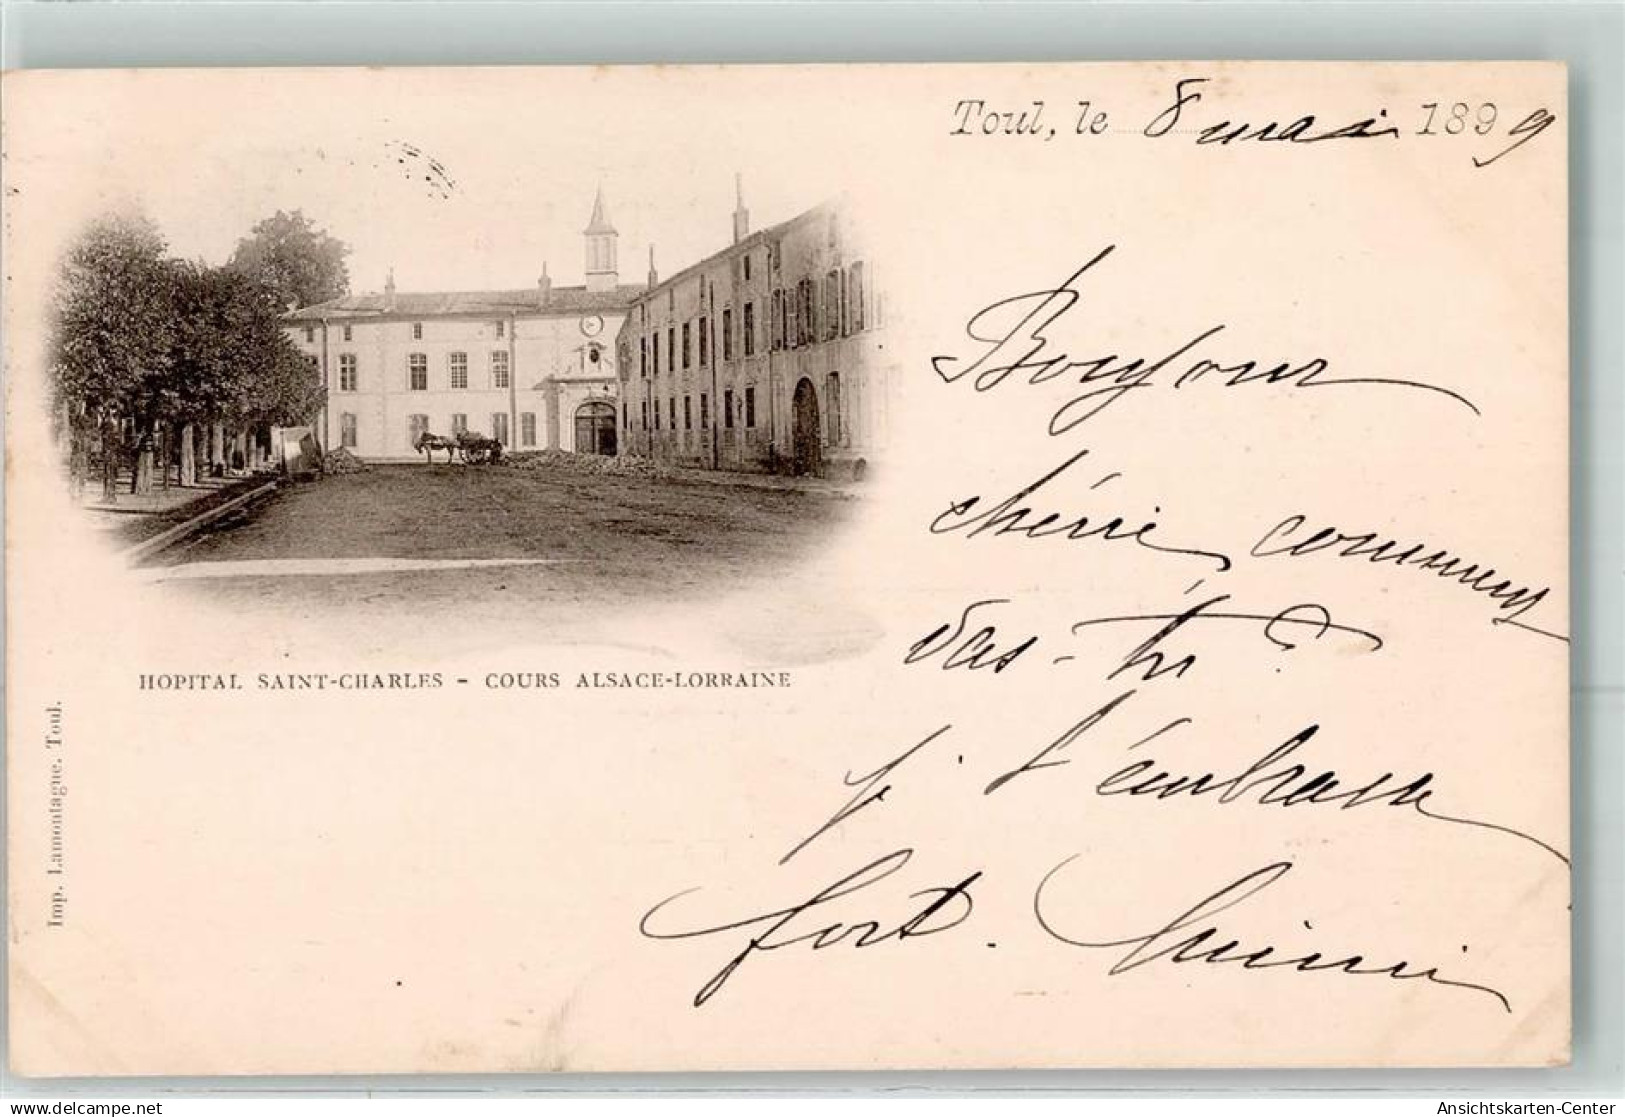 Toul, le 8 mai 1899
Bonjour
chérie comment
vas-tu ?
je t'embrasse
fort.
HOPITAL SAINT-CHARLES - COURS ALSACE-LORRAINE
Imp. Lamontagne, Toul.
Ansichtskarten-Center